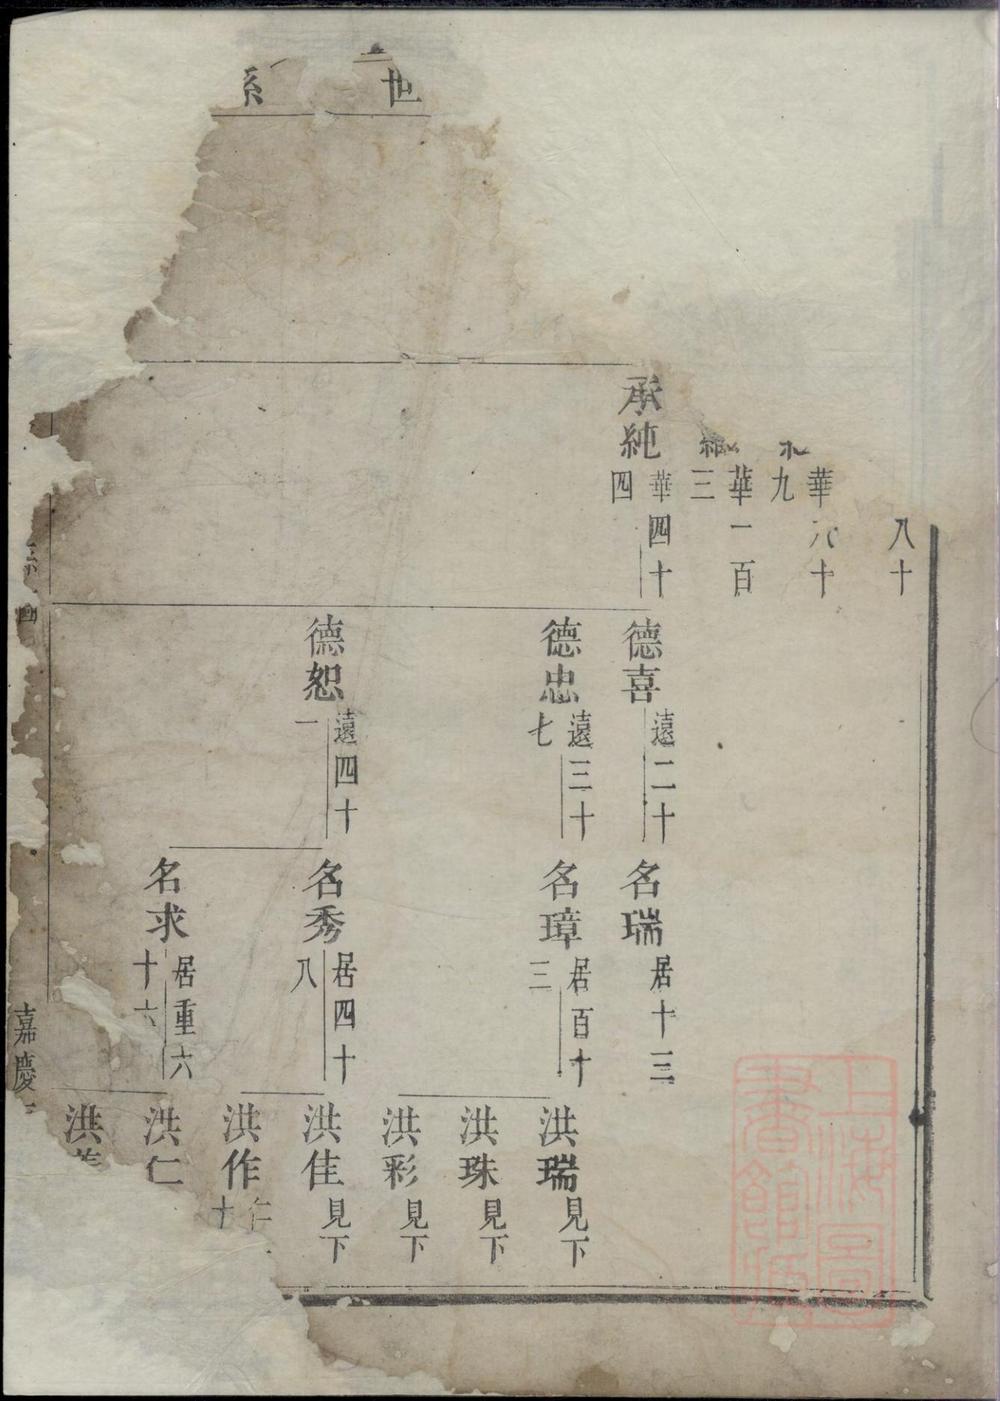 世系
八十
華六十九
華一百三
承純 華四十四
德喜 遠二十
德忠 遠三十七
德恕 遠四十一
名瑞 居十三
名璋 居百十三
名秀 居四十八
名求 居重六十六
洪瑞 見下
洪珠 見下
洪彩 見下
洪佳 見下
洪作 仁十
洪仁
洪
嘉慶
上海圖書館藏